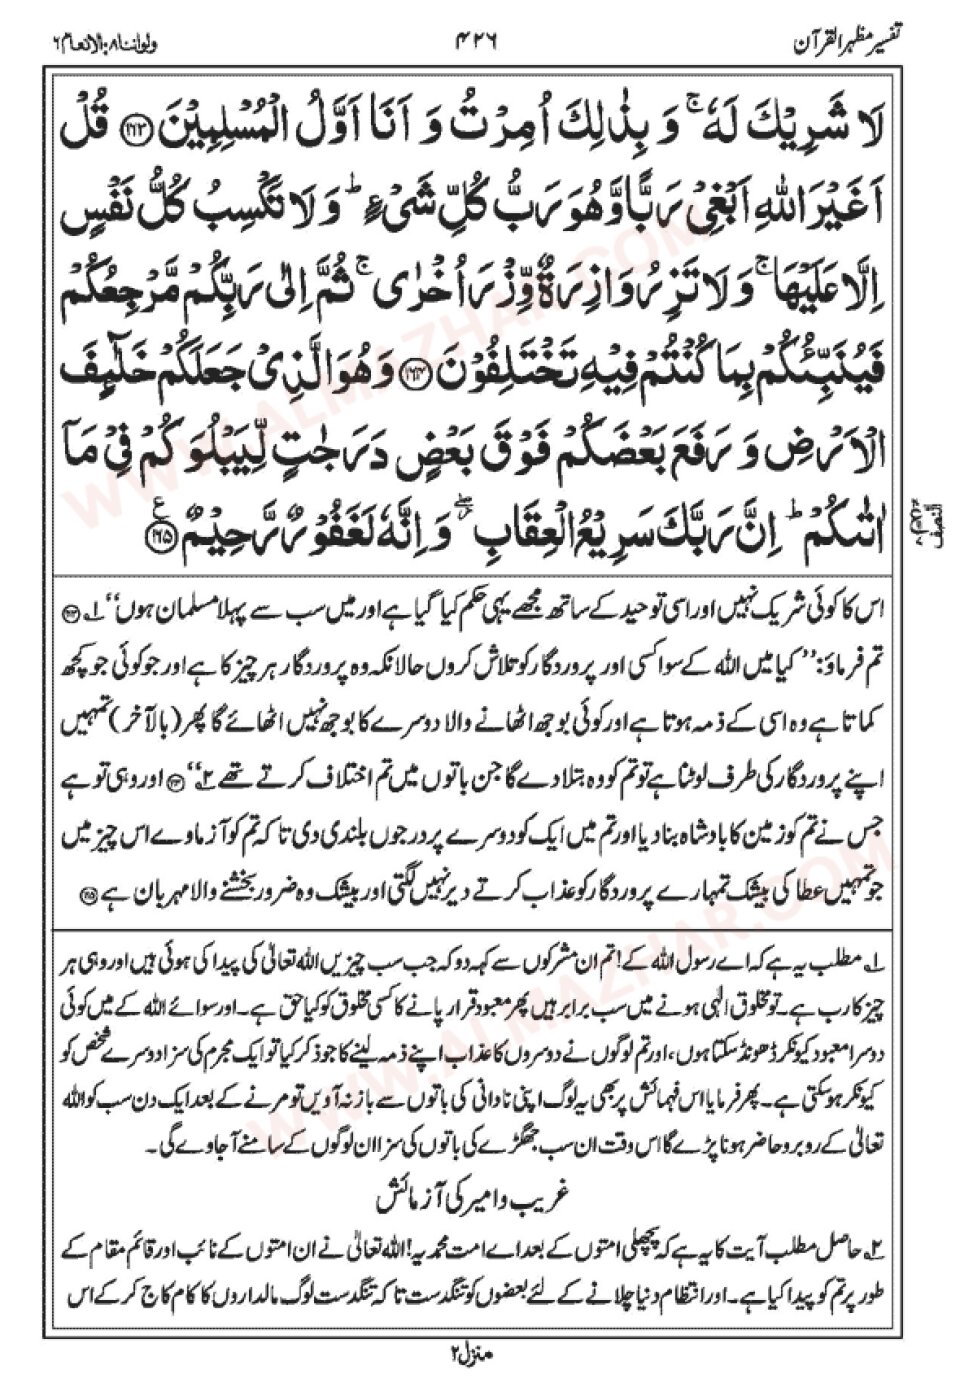 تفسیر مظہر القرآن
۴۲۶
ولواننا۸:الانعام۶
لَا شَرِيْكَ لَهٗ ۚ وَ بِذٰلِكَ اُمِرْتُ وَ اَنَا اَوَّلُ الْمُسْلِمِيْنَ ﴿۱۶۳﴾ قُلْ
اَغَيْرَ اللّٰهِ اَبْغِيْ رَبًّا وَّهُوَ رَبُّ كُلِّ شَيْءٍ ؕ وَ لَا تَكْسِبُ كُلُّ نَفْسٍ
اِلَّا عَلَيْهَا ۚ وَ لَا تَزِرُ وَازِرَةٌ وِّزْرَ اُخْرٰى ۚ ثُمَّ اِلٰى رَبِّكُمْ مَّرْجِعُكُمْ
فَيُنَبِّئُكُمْ بِمَا كُنْتُمْ فِيْهِ تَخْتَلِفُوْنَ ﴿۱۶۴﴾ وَ هُوَ الَّذِيْ جَعَلَكُمْ خَلٰٓىِٕفَ
الْاَرْضِ وَ رَفَعَ بَعْضَكُمْ فَوْقَ بَعْضٍ دَرَجٰتٍ لِّيَبْلُوَكُمْ فِيْ مَاۤ
اٰتٰىكُمْ ؕ اِنَّ رَبَّكَ سَرِيْعُ الْعِقَابِ ۖ وَ اِنَّهٗ لَغَفُوْرٌ رَّحِيْمٌ ﴿۱۶۵﴾ ع
النصف
اس کا کوئی شریک نہیں اور اسی توحید کے ساتھ مجھے یہی حکم کیا گیا ہے اور میں سب سے پہلا مسلمان ہوں‘‘ ۱؎ ﴿۱۶۳﴾
تم فرماؤ: ’’کیا میں اللہ کے سوا کسی اور پروردگار کو تلاش کروں حالانکہ وہ پروردگار ہر چیز کا ہے اور جو کوئی جو کچھ
کماتا ہے وہ اسی کے ذمہ ہوتا ہے اور کوئی بوجھ اٹھانے والا دوسرے کا بوجھ نہیں اٹھائے گا پھر (بالآخر) تمہیں
اپنے پروردگار کی طرف لوٹنا ہے تو تم کو وہ بتلا دے گا جن باتوں میں تم اختلاف کرتے تھے ۲؎‘‘ ﴿۱۶۴﴾ اور وہی تو ہے
جس نے تم کو زمین کا بادشاہ بنا دیا اور تم میں ایک کو دوسرے پر درجوں بلندی دی تا کہ تم کو آزماوے اس چیز میں
جو تمہیں عطا کی بیشک تمہارے پروردگار کو عذاب کرتے دیر نہیں لگتی اور بیشک وہ ضرور بخشنے والا مہربان ہے ﴿۱۶۵﴾
۱؎ مطلب یہ ہے کہ اے رسول اللہ کے! تم ان مشرکوں سے کہہ دو کہ جب سب چیزیں اللہ تعالیٰ کی پیدا کی ہوئی ہیں اور وہی ہر
چیز کا رب ہے۔ تو مخلوق الٰہی ہونے میں سب برابر ہیں پھر معبود قرار پانے کا کسی مخلوق کو کیا حق ہے۔ اور سوائے اللہ کے میں کوئی
دوسرا معبود کیونکر ڈھونڈ سکتا ہوں، اور تم لوگوں نے دوسروں کا عذاب اپنے ذمہ لینے کا جو ذکر کیا تو ایک مجرم کی سزا دوسرے شخص کو
کیونکر ہو سکتی ہے۔ پھر فرمایا اس فہمائش پر بھی یہ لوگ اپنی نادانی کی باتوں سے باز نہ آویں تو مرنے کے بعد ایک دن سب کو اللہ
تعالیٰ کے روبرو حاضر ہونا پڑے گا اس وقت ان سب جھگڑے کی باتوں کی سزا ان لوگوں کے سامنے آجاوے گی۔
غریب و امیر کی آزمائش
۲؎ حاصل مطلب آیت کا یہ ہے کہ پچھلی امتوں کے بعد اے امت محمدیہ! اللہ تعالیٰ نے ان امتوں کے نائب اور قائم مقام کے
طور پر تم کو پیدا کیا ہے۔ اور انتظام دنیا چلانے کے لئے بعضوں کو تنگدست تا کہ تنگدست لوگ مالداروں کا کام کاج کر کے اس
منزل۲
WWW.ALMAZHAR.COM
WWW.ALMAZHAR.COM